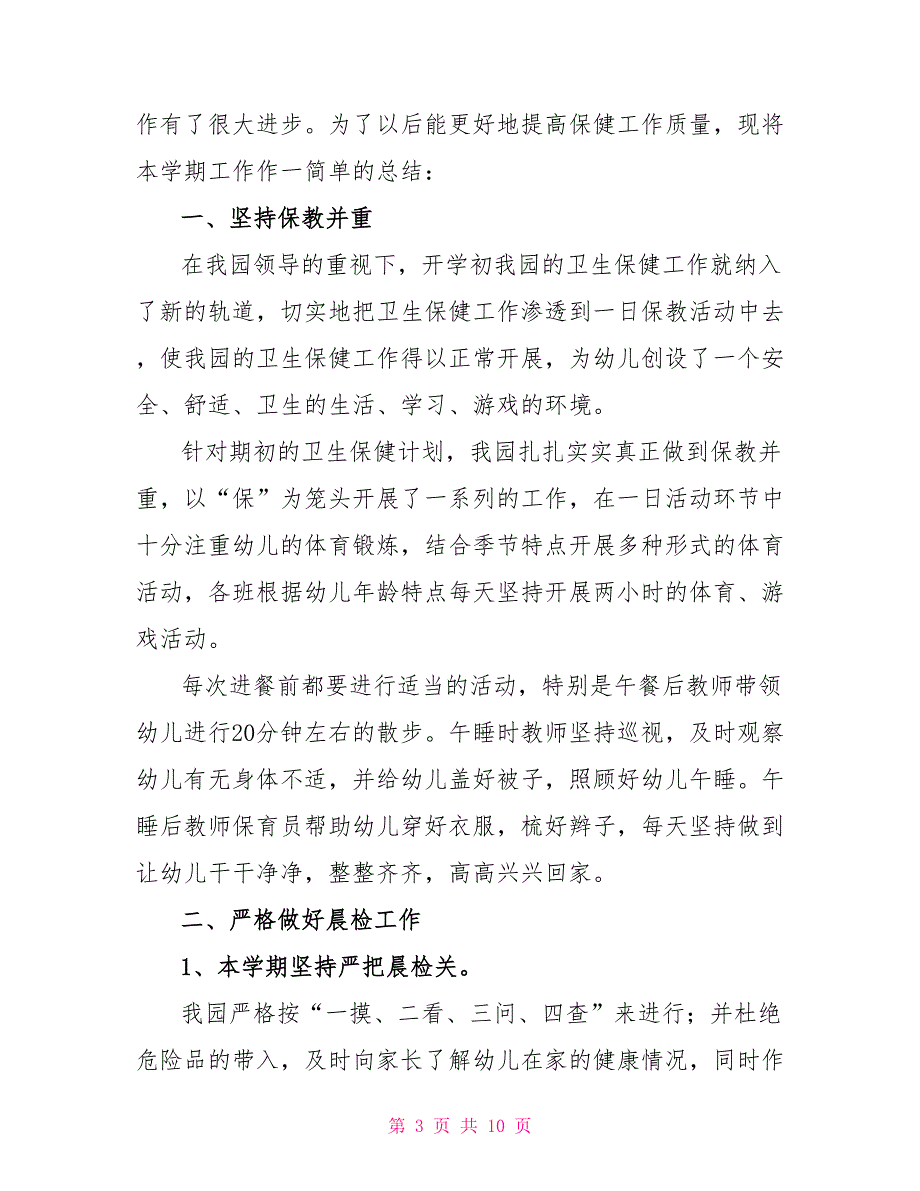 作有了很大进步。为了以后能更好地提高保健工作质量，现将
本学期工作作一简单的总结：
一、坚持保教并重
在我园领导的重视下，开学初我园的卫生保健工作就纳入
了新的轨道，切实地把卫生保健工作渗透到一日保教活动中去
，使我园的卫生保健工作得以正常开展，为幼儿创设了一个安
全、舒适、卫生的生活、学习、游戏的环境。
针对期初的卫生保健计划，我园扎扎实实真正做到保教并
重，以“保”为笼头开展了一系列的工作，在一日活动环节中
十分注重幼儿的体育锻炼，结合季节特点开展多种形式的体育
活动，各班根据幼儿年龄特点每天坚持开展两小时的体育、游
戏活动。
每次进餐前都要进行适当的活动，特别是午餐后教师带领
幼儿进行20分钟左右的散步。午睡时教师坚持巡视，及时观察
幼儿有无身体不适，并给幼儿盖好被子，照顾好幼儿午睡。午
睡后教师保育员帮助幼儿穿好衣服，梳好辫子，每天坚持做到
让幼儿干干净净，整整齐齐，高高兴兴回家。
二、严格做好晨检工作
1、本学期坚持严把晨检关。
我园严格按“一摸、二看、三问、四查”来进行；并杜绝
危险品的带入，及时向家长了解幼儿在家的健康情况，同时作
第 3 页 共 10 页